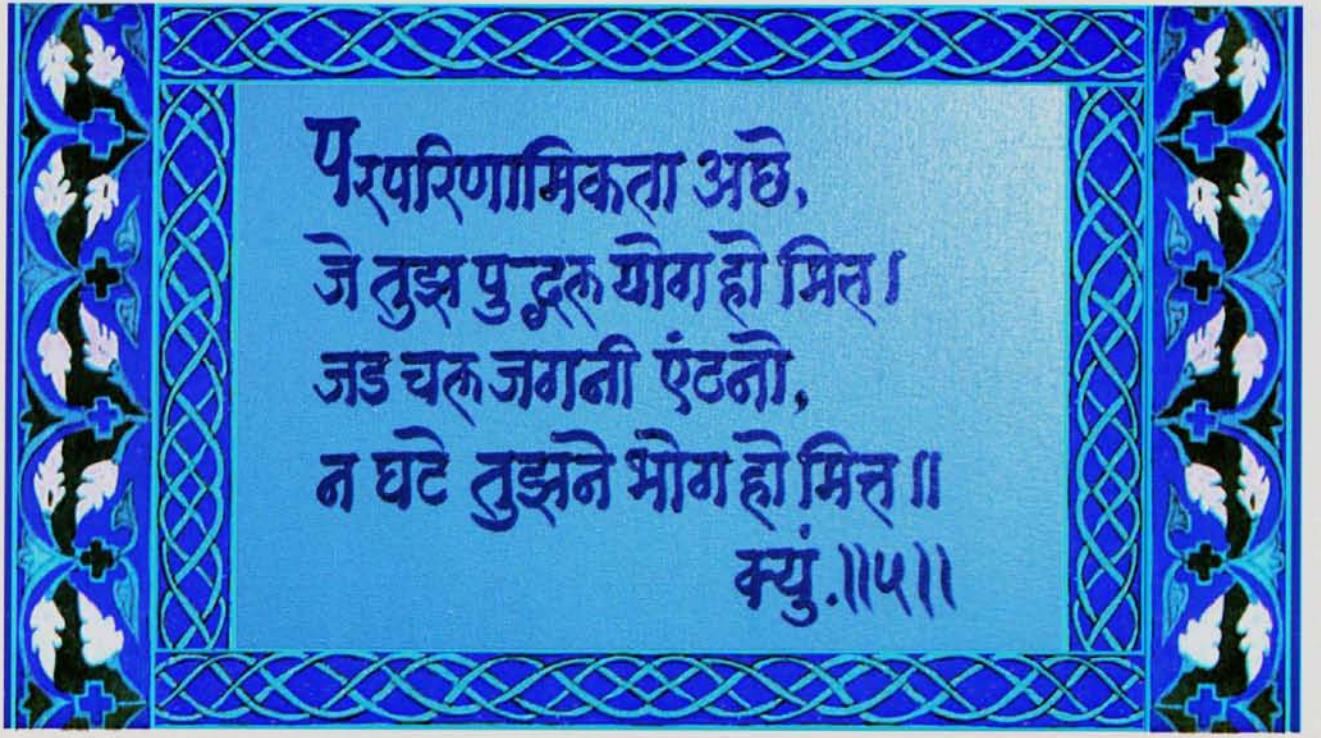 परपरिणामिकता अछे,
जे तुझ पुद्गल योग हो मित्त।
जड चल जगनी एंठनो,
न घटे तुझने भोग हो मित्त॥
क्युं.॥५॥